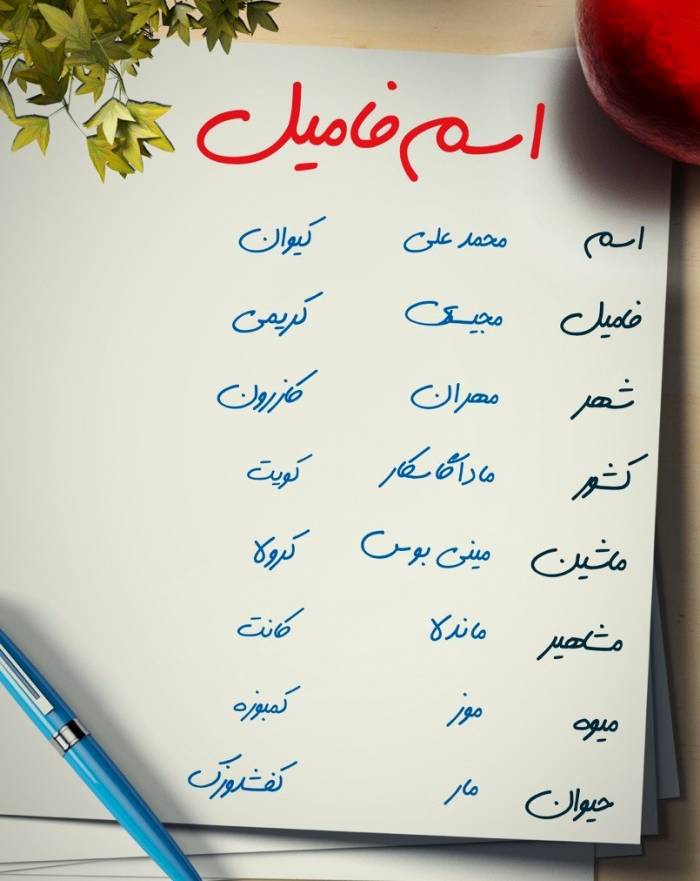 اسم فامیل
اسم محمد علی کیوان
فامیل مجیسی کریمی
شهر مهران کازرون
کشور ماداگاسکار کویت
ماشین مینی بوس کرولا
مشاهیر ماندلا کانت
میوه موز کمبوزه
حیوان مار کفشدوزک